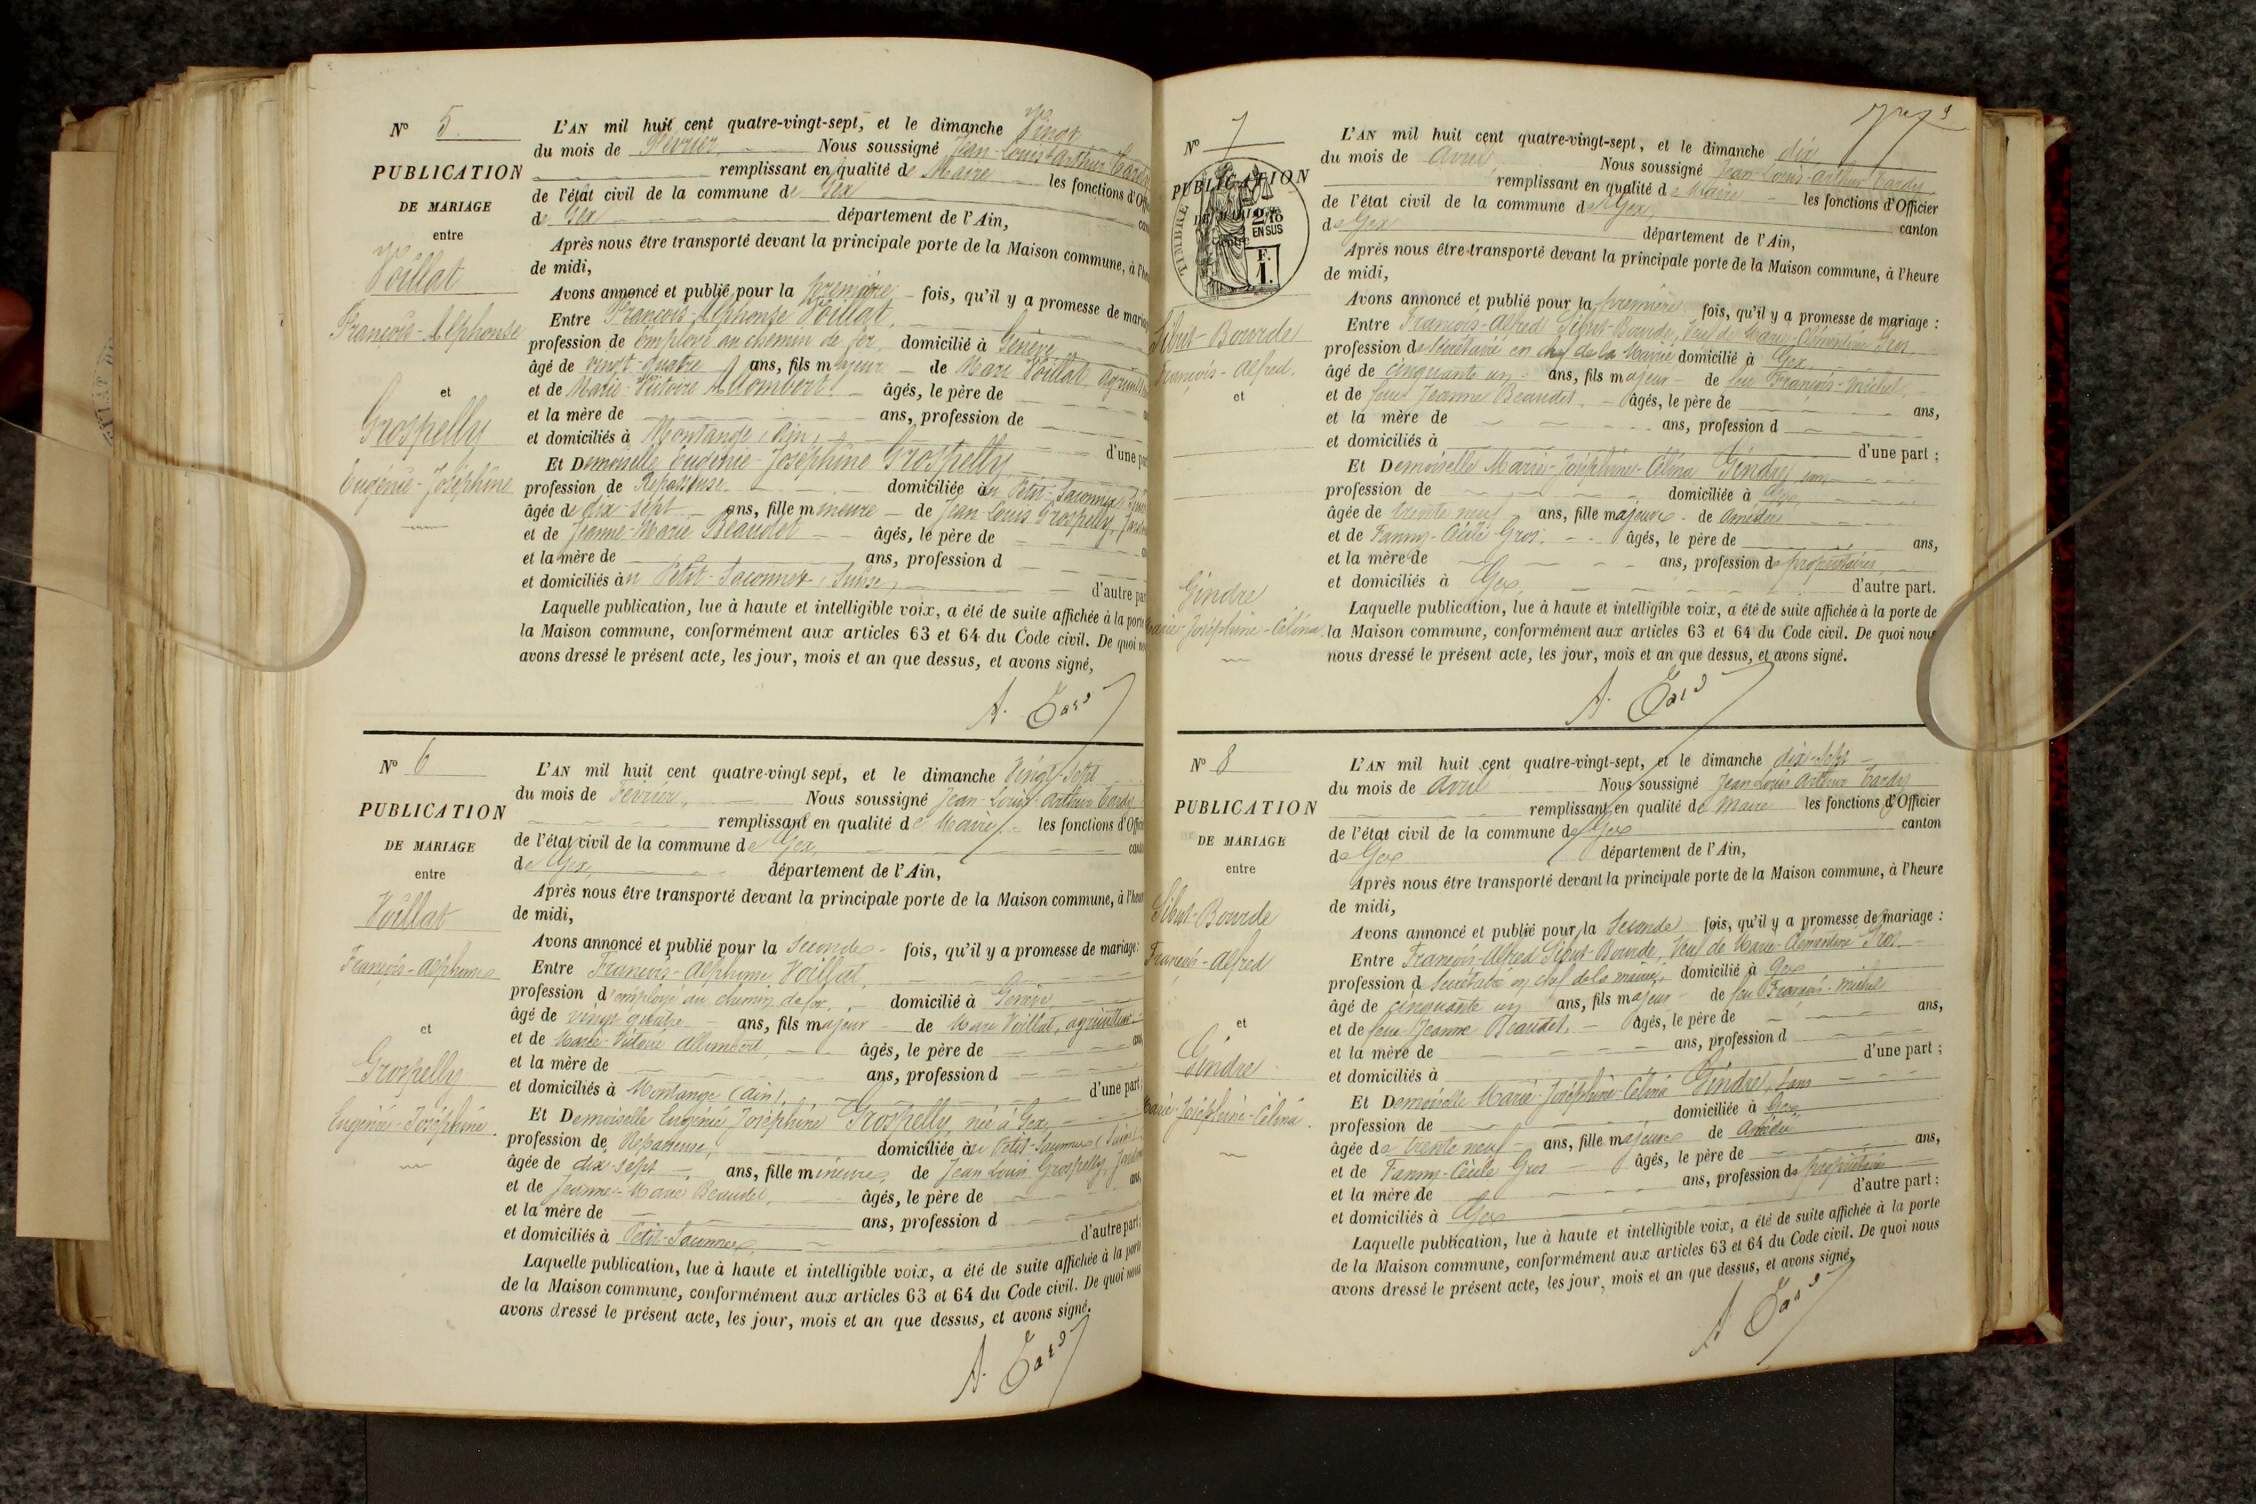 Nº 5.
PUBLICATION
DE MARIAGE
entre
Voillat
François-Alphonse
et
Grospelly
Eugénie-Joséphine
L'AN mil huit cent quatre-vingt-sept, et le dimanche Vingt
du mois de Février, Nous soussigné Jean-Louis-Arthur Tardy
remplissant en qualité de Maire les fonctions d'Offi
de l'état civil de la commune de Gex
de Gex département de l'Ain,
Après nous être transporté devant la principale porte de la Maison commune, à l'h
de midi,
Avons annoncé et publié pour la première fois, qu'il y a promesse de maria
Entre François-Alphonse Voillat,
profession de Employé au chemin de fer, domicilié à Genève
âgé de vingt-quatre ans, fils majeur de Marc Voillat, agricult
et de Marie-Victoire Allombert. âgés, le père de
et la mère de ans, profession de
et domiciliés à Montange (Ain), d'une par
Et Demoiselle Eugénie-Joséphine Grospelly
profession de Repasseuse. domiciliée au Petit-Saconnex
âgée de dix-sept ans, fille mineure de Jean-Louis Grospelly,
et de Jeanne-Marie Beaudet âgés, le père de
et la mère de ans, profession d
et domiciliés au Petit-Saconnex (Suisse) d'autre par
Laquelle publication, lue à haute et intelligible voix, a été de suite affichée à la porte
la Maison commune, conformément aux articles 63 et 64 du Code civil. De quoi no
avons dressé le présent acte, les jour, mois et an que dessus, et avons signé,
A. Tardy
Nº 6
PUBLICATION
DE MARIAGE
entre
Voillat
François-Alphonse
et
Grospelly
Eugénie-Joséphine.
L'AN mil huit cent quatre-vingt sept, et le dimanche Vingt-sept
du mois de Février, Nous soussigné Jean-Louis-Arthur Tardy
remplissant en qualité de Maire, les fonctions d'Offici
de l'état civil de la commune de Gex, can
de Gex, département de l'Ain,
Après nous être transporté devant la principale porte de la Maison commune, à l'heur
de midi,
Avons annoncé et publié pour la seconde fois, qu'il y a promesse de mariage :
Entre François-Alphonse Voillat,
profession d'employé au chemin de fer, domicilié à Genève
âgé de vingt quatre ans, fils majeur de Marc Voillat, agriculteur
et de Marie-Victoire Allombert, âgés, le père de ans,
et la mère de ans, profession d
et domiciliés à Montange (Ain), d'une part ;
Et Demoiselle Eugénie Joséphine Grospelly, née à Gex,
profession de Repasseuse, domiciliée au Petit-Saconnex (Suisse)
âgée de dix-sept ans, fille mineure, de Jean Louis Grospelly,
et de Jeanne-Marie Beaudet, âgés, le père de ans,
et la mère de ans, profession d
et domiciliés à Petit-Saconnex, d'autre part ;
Laquelle publication, lue à haute et intelligible voix, a été de suite affichée à la porte
de la Maison commune, conformément aux articles 63 et 64 du Code civil. De quoi nous
avons dressé le présent acte, les jour, mois et an que dessus, et avons signé.
A. Tardy
Nº 7
PUBLICATION
TIMBRE
2/10
EN SUS
F.
1.
Sibut-Bourde
François-Alfred.
et
Gindre
Marie-Joséphine-Célina
L'AN mil huit cent quatre-vingt-sept, et le dimanche dix
du mois de Avril Nous soussigné Jean-Louis-Arthur Tardy
remplissant en qualité de Maire les fonctions d'Officier
de l'état civil de la commune de Gex canton
de Gex département de l'Ain,
Après nous être transporté devant la principale porte de la Maison commune, à l'heure
de midi,
Avons annoncé et publié pour la première fois, qu'il y a promesse de mariage :
Entre François-Alfred Sibut-Bourde, Veuf de Marie-Clémentine Gros,
profession de Secrétaire en chef de la Mairie domicilié à Gex,
âgé de cinquante un ans, fils majeur de feu François-Michel,
et de feue Jeanne Beaudet. âgés, le père de ans,
et la mère de ans, profession d
et domiciliés à d'une part ;
Et Demoiselle Marie-Joséphine-Célina Gindre, sans
profession de domiciliée à Gex,
âgée de trente neuf ans, fille majeure de Amédée
et de Fanny-Cécile Gros. âgés, le père de ans,
et la mère de ans, profession de propriétaires,
et domiciliés à Gex, d'autre part.
Laquelle publication, lue à haute et intelligible voix, a été de suite affichée à la porte de
la Maison commune, conformément aux articles 63 et 64 du Code civil. De quoi nous
nous dressé le présent acte, les jour, mois et an que dessus, et avons signé.
A. Tardy
Nº 8
PUBLICATION
DE MARIAGE
entre
Sibut-Bourde
François-Alfred
et
Gindre
Marie-Joséphine-Célina.
L'AN mil huit cent quatre-vingt-sept, et le dimanche dix-sept
du mois de Avril Nous soussigné Jean Louis Arthur Tardy
remplissant en qualité de Maire les fonctions d'Officier
de l'état civil de la commune de Gex canton
de Gex département de l'Ain,
Après nous être transporté devant la principale porte de la Maison commune, à l'heure
de midi,
Avons annoncé et publié pour la seconde fois, qu'il y a promesse de mariage :
Entre François-Alfred Sibut-Bourde, Veuf de Marie-Clémentine Gros
profession d Secrétaire en chef de la mairie, domicilié à Gex
âgé de cinquante un ans, fils majeur de feu François-Michel
et de feue Jeanne Beaudet, âgés, le père de ans,
et la mère de ans, profession d
et domiciliés à d'une part ;
Et Demoiselle Marie-Joséphine-Célina Gindre, sans
profession de domiciliée à Gex,
âgée de trente neuf ans, fille majeure de Amédée
et de Fanny-Cécile Gros âgés, le père de ans,
et la mère de ans, profession de propriétaires
et domiciliés à Gex d'autre part ;
Laquelle publication, lue à haute et intelligible voix, a été de suite affichée à la porte
de la Maison commune, conformément aux articles 63 et 64 du Code civil. De quoi nous
avons dressé le présent acte, les jour, mois et an que dessus, et avons signé,
A. Tardy